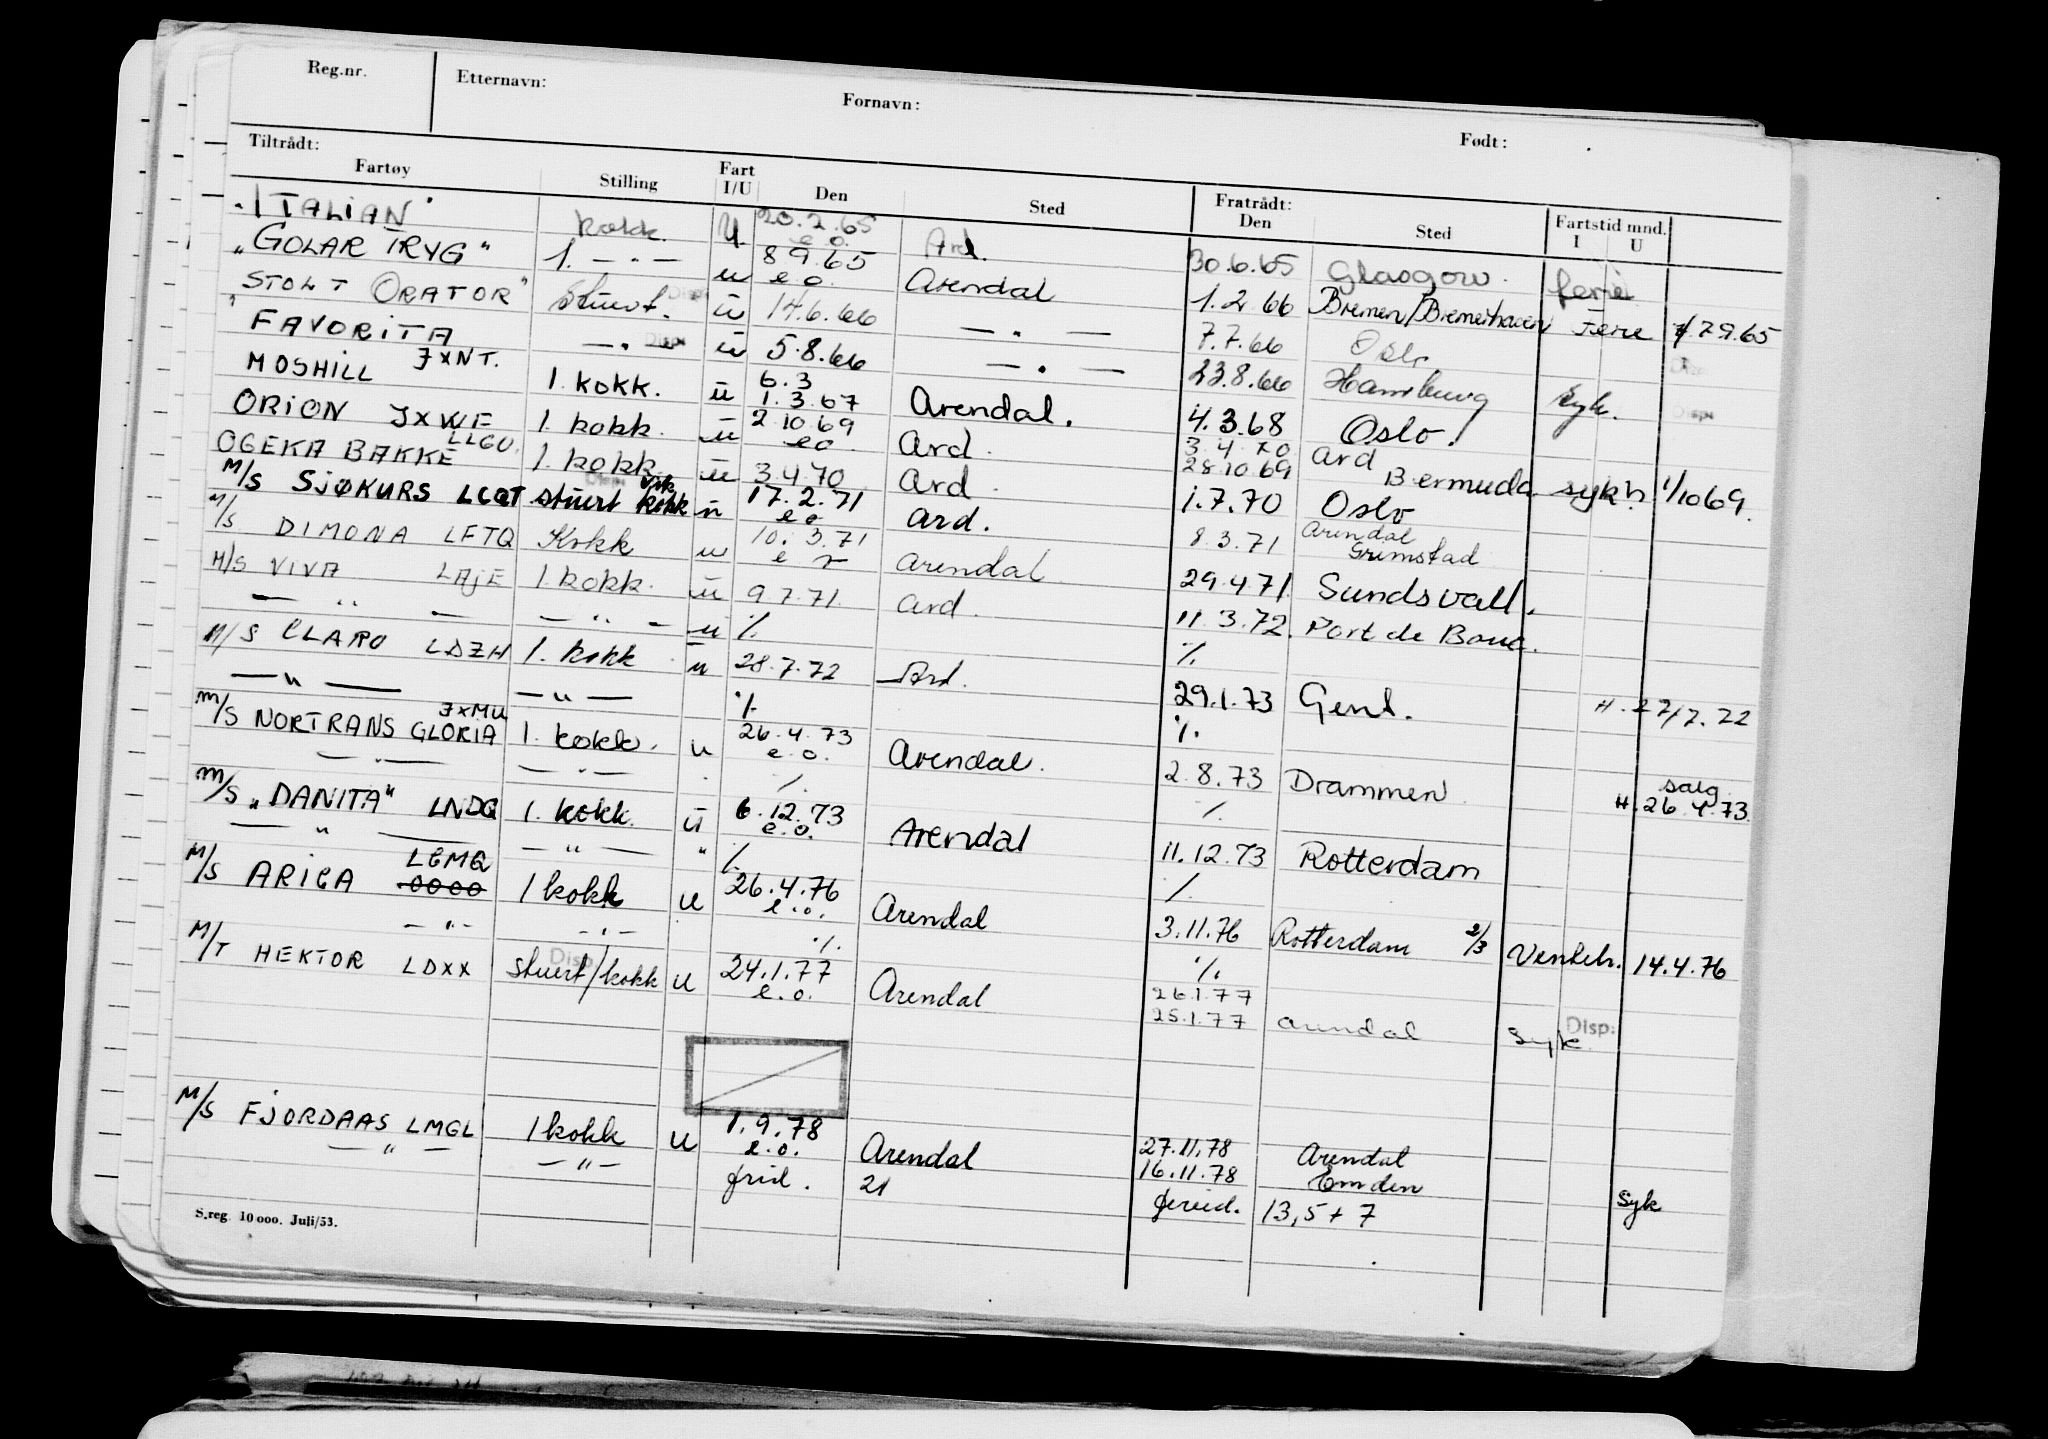 Reg.nr. Etternavn: Fornavn: Født:
Tiltrådt: Fratrådt:
Fartøy Stilling Fart I/U Den Sted Den Sted Fartstid mnd. I U
"ITALIAN" kokk. U 20.2.65 e.o. Ard. 30.6.65 Glasgow. ferie
"GOLAR TRYG" 1. — " — u 8.9.65 e.o. Arendal 1.2.66 Bremen/Bremerhaven Ferie 7.9.65
STOLT ORATOR" Stuert. Disp. u 14.6.66 — " — 7.7.66 Oslo Disp.
"FAVORITA — " — Disp. u 5.8.66 — " — 23.8.66 Hamburg Syk. Disp.
MOSHILL JXNT. 1. kokk. u 6.3 1.3.67 Arendal. 4.3.68 Oslo.
ORION JXWE 1. kokk. u 2.10.69 e.o. Ard. 3.4.70 28.10.69 Ard Bermuda sykh. 1/10 69.
OGEKA BAKKE LLGU. 1. kokk. u 3.4.70 Ard. 1.7.70 Oslo
M/S SJØKURS LCQT stuert Disp. kokk u 17.2.71 e.o. Ard. 8.3.71 Arendal Grimstad
M/S DIMONA LFTQ Kokk u 10.3.71 Arendal 29.4.71. Sundsvall.
M/S VIVA LAJE 1. kokk. u 9.7.71. Ard. 11.3.72. Port de Bouc.
— " — — " — u % %
M/S CLARO LDZH 1. kokk u 28.7.72 Ard. 29.1.73 Gent. H. 27/7.72
— " — — " — % %
M/S NORTRANS GLORIA JXMU 1. kokk. u 26.4.73 e.o. Arendal. 2.8.73 Drammen salg H. 26.4.73.
— " — — " — % %
M/S "DANITA" LNDQ 1. kokk. u 6.12.73 e.o. Arendal 11.12.73 Rotterdam
— " — — " — " % %
M/S ARICA LEMQ 1 kokk u 26.4.76 e.o. Arendal 3.11.76 Rotterdam 2/3 Ventetn. 14.4.76
— " — — " — % %
M/T HEKTOR LDXX Stuert/kokk Disp. u 24.1.77 e.o. Arendal 26.1.77
25.1.77 Arendal Syk Disp:
M/S FJORDAAS LMGL 1 kokk u 1.9.78 e.o. Arendal 27.11.78 Arendal
— " — — " — 16.11.78 Emden Syk
frid. 21 feried. 13,5 + 7
S.reg. 10 000. Juli/53.